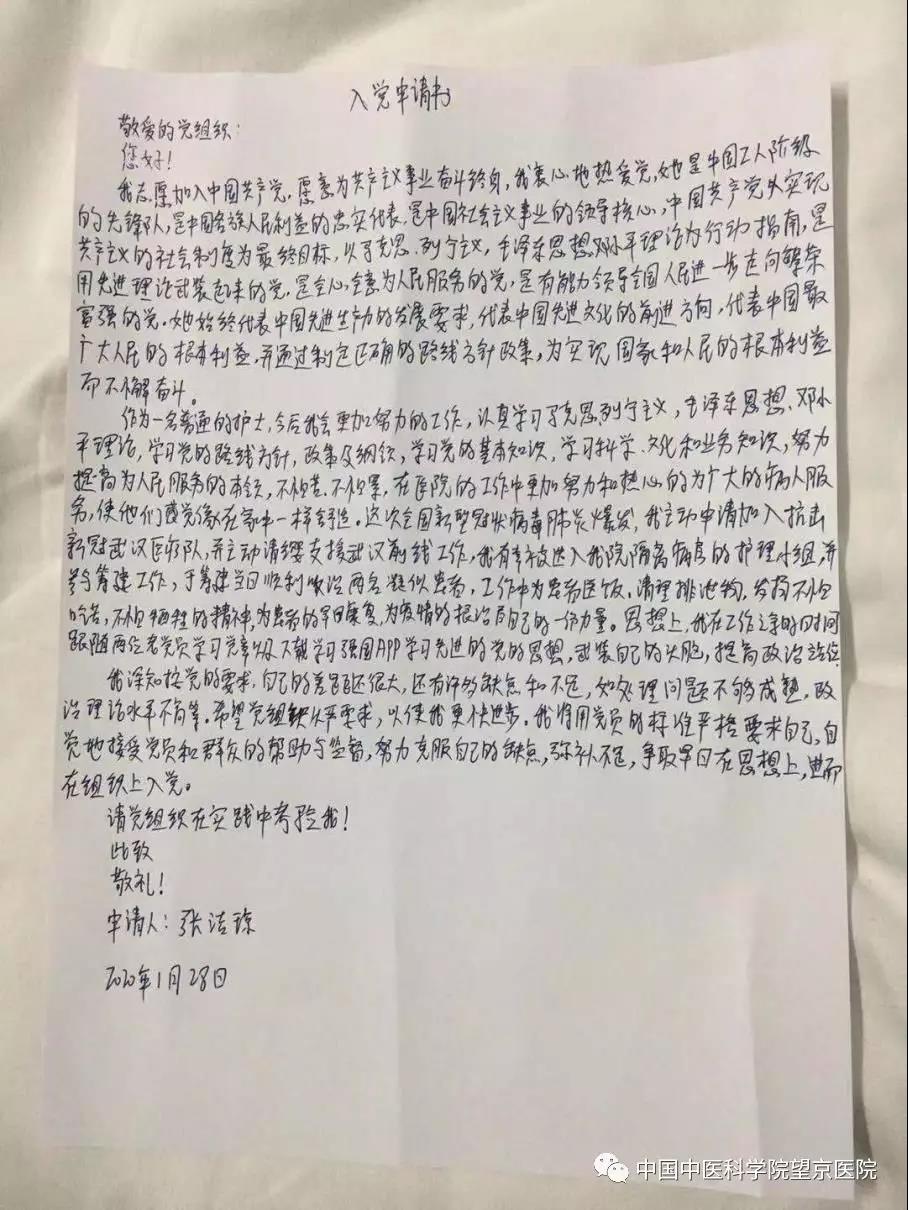 入党申请书
敬爱的党组织：
您好！
我志愿加入中国共产党，愿意为共产主义事业奋斗终身，我衷心地热爱党，她是中国工人阶级
的先锋队，是中国各族人民利益的忠实代表，是中国社会主义事业的领导核心，中国共产党以实现
共产主义的社会制度为最终目标，以马克思、列宁主义，毛泽东思想、邓小平理论为行动指南，是
用先进理论武装起来的党，是全心全意为人民服务的党，是有能力领导全国人民进一步走向繁荣
富强的党。她始终代表中国先进生产力的发展要求，代表中国先进文化的前进方向，代表中国最
广大人民的根本利益，并通过制定正确的路线方针政策，为实现国家和人民的根本利益
而不懈奋斗。
作为一名普通的护士，今后我会更加努力的工作，认真学习马克思列宁主义，毛泽东思想、邓小
平理论，学习党的路线方针，政策及纲领，学习党的基本知识，学习科学、文化和业务知识，努力
提高为人民服务的本领，不怕苦、不怕累，在医院的工作中更加努力和热心的为广大的病人服
务，使他们感觉像在家中一样舒适。这次全国新型冠状病毒肺炎爆发，我主动申请加入抗击
新冠武汉医疗队，并主动请缨支援武汉前线工作，我有幸被选入我院隔离病房的护理小组，并
参与筹建工作，于筹建当日顺利收治两名疑似患者，工作中为患者医饭、清理排泄物，发药不怕
吃苦，不怕牺牲的精神，为患者的早日康复，为疫情的根治自己的一份力量。思想上，我在工作之余的时间
跟随两位老党员学习党章以及下载学习强国APP学习先进的党的思想，武装自己的头脑，提高政治站位
我深知按党的要求，自己的差距还很大，还有许多缺点和不足，如处理问题不够成熟，政
治理论水平不高等。希望党组织从严要求，以使我更快进步。我将用党员的标准严格要求自己，自
觉地接受党员和群众的帮助与监督，努力克服自己的缺点，弥补不足，争取早日在思想上，进而
在组织上入党。
请党组织在实践中考验我！
此致
敬礼！
申请人：张洁琼
2020年1月28日
中国中医科学院望京医院